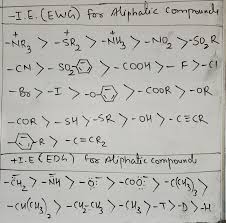 -I.E.(EWG) for Aliphatic Compounds
-N⁺R₃ > -S⁺R₂ > -N⁺H₃ > -NO₂ > -SO₂R
-CN > -SO₂⌬ > -COOH > -F > -Cl
-Br > -I > -O-⌬ > -COOR > -OR
-COR > -SH > -SR > -OH > -C≡CR
⌬-R > -C=CR₂
+I.E (EDG) for Aliphatic compounds
-C̄H₂ > -N̄H > -Ō > -COŌ > -C(CH₃)₃ >
-CH(CH₃)₂ > -CH₂-CH₃ > -CH₃ > -T > -D > -H